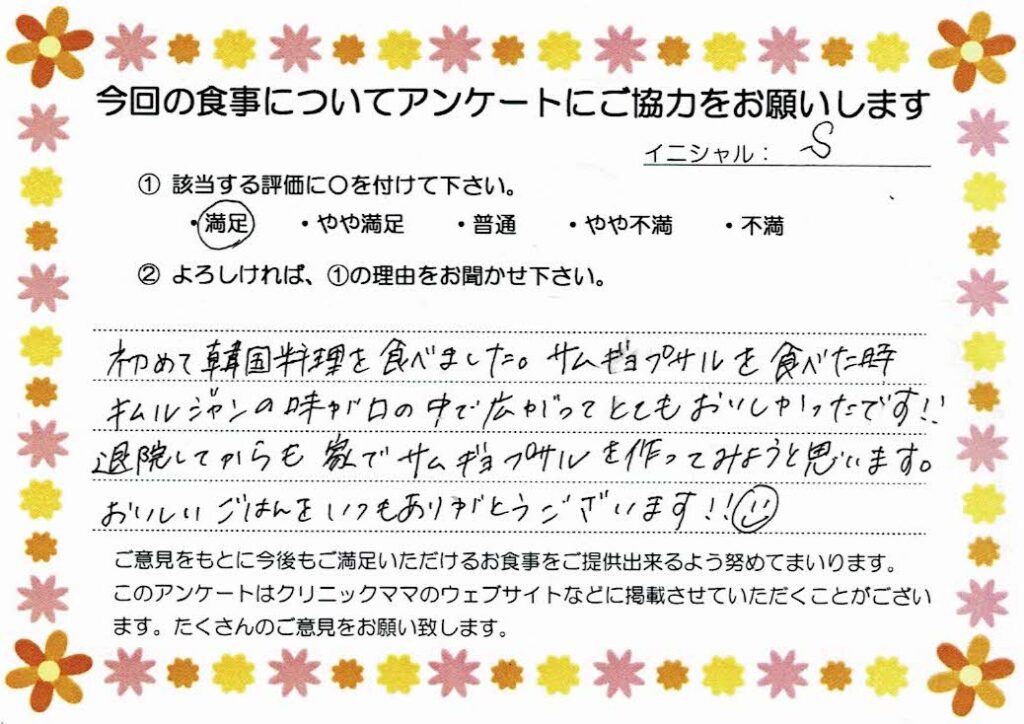 今回の食事についてアンケートにご協力をお願いします
イニシャル： S
① 該当する評価に〇を付けて下さい。
・満足 ・やや満足 ・普通 ・やや不満 ・不満
② よろしければ、①の理由をお聞かせ下さい。
初めて韓国料理を食べました。サムギョプサルを食べた時
キムルジャンの味が口の中で広がってとてもおいしかったです!!
退院してからも家でサムギョプサルを作ってみようと思います。
おいしいごはんをいつもありがとうございます!!
ご意見をもとに今後もご満足いただけるお食事をご提供出来るよう努めてまいります。
このアンケートはクリニックママのウェブサイトなどに掲載させていただくことがござい
ます。たくさんのご意見をお願い致します。